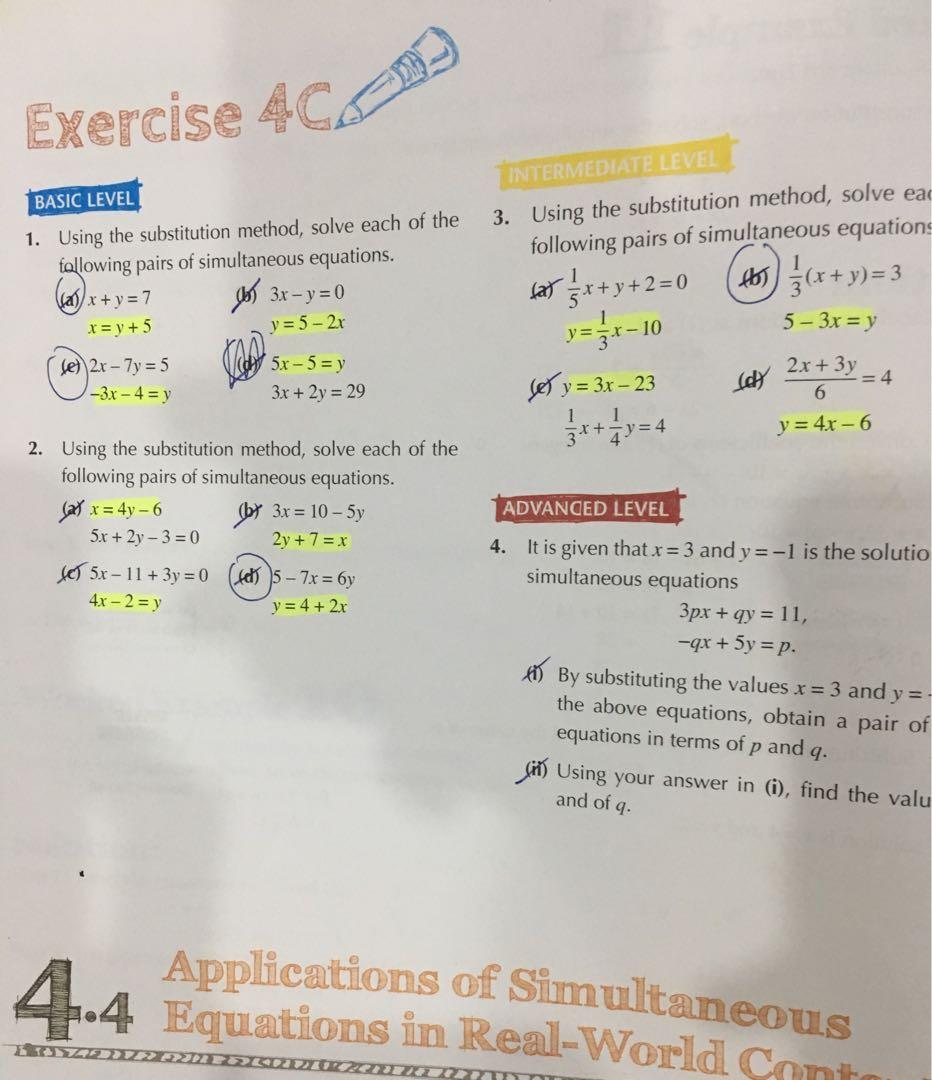 Exercise 4C
BASIC LEVEL
1. Using the substitution method, solve each of the
following pairs of simultaneous equations.
(a) x + y = 7
x = y + 5
(b) 3x – y = 0
y = 5 – 2x
(c) 2x – 7y = 5
–3x – 4 = y
(d) 5x – 5 = y
3x + 2y = 29
2. Using the substitution method, solve each of the
following pairs of simultaneous equations.
(a) x = 4y – 6
5x + 2y – 3 = 0
(b) 3x = 10 – 5y
2y + 7 = x
(c) 5x – 11 + 3y = 0
4x – 2 = y
(d) 5 – 7x = 6y
y = 4 + 2x
INTERMEDIATE LEVEL
3. Using the substitution method, solve
following pairs of simultaneous equations
(a) 1/5 x + y + 2 = 0
y = 1/3 x – 10
(b) 1/3 (x + y) = 3
5 – 3x = y
(c) y = 3x – 23
1/3 x + 1/4 y = 4
(d) (2x + 3y)/6 = 4
y = 4x – 6
ADVANCED LEVEL
4. It is given that x = 3 and y = –1 is the
simultaneous equations
3px + qy = 11,
–qx + 5y = p.
(i) By substituting the values x = 3 and y =
the above equations, obtain a pair of
equations in terms of p and q.
(ii) Using your answer in (i), find the
and of q.
4.4 Applications of Simultaneous
Equations in Real-World